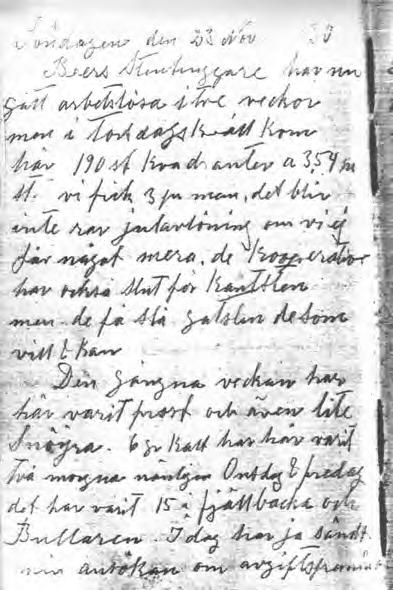 Söndagen den 23 Nov 30
Beers Stenhuggare har nu
gått arbetslösa i tre veckor
men i torsdags kväll kom
här 190 st kvadranter a 3,54 pr
st. vi fick 3 pr man, det blir
inte rar julavlöning om vi ej
får något mera, de kooperativa
har också slut för kantsten
men de få slå gatsten de som
vill & kan
Den gångna veckan har
här varit frost och även lite
Snöyra. 6 gr kallt har här varit
två morgna nämligen Onsdag & fredag
det har varit 15 i fjällbacka och
Bullaren. I dag har ja sändt
min ansökan om avgifts